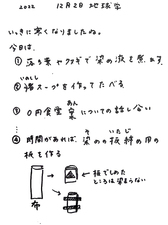 2022 12月2日 地球学
いっきに寒くなりましたね。
今日は、
① 落ち葉やクヌギで染の液を煮出す
いのしし
② 猪スープを作ってたべる
あん
③ 0円食堂案についての話し合い
そ いたじ
④ 時間があれば、染めの板締の用の
板を作る
布
板でしめた
ところは染まらない